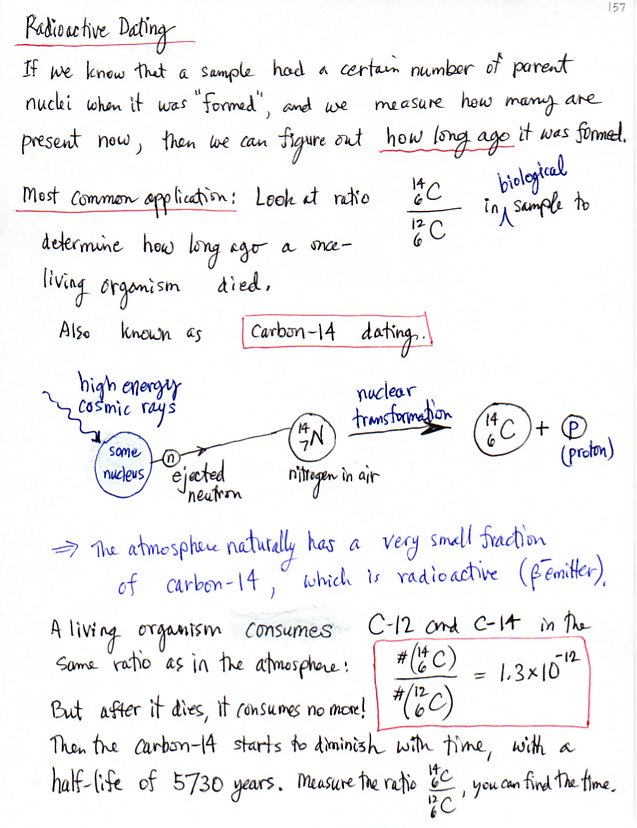 157
Radioactive Dating
If we know that a sample had a certain number of parent
nuclei when it was "formed", and we measure how many are
present now, then we can figure out how long ago it was formed.
Most common application: Look at ratio ¹⁴₆C / ¹²₆C in biological sample to
determine how long ago a once-
living organism died.
Also known as Carbon-14 dating.
high energy
cosmic rays
some
nucleus
n
ejected
neutron
¹⁴₇N
nitrogen in air
nuclear
transformation
¹⁴₆C + P
(proton)
⇒ The atmosphere naturally has a very small fraction
of carbon-14, which is radioactive (β⁻ emitter).
A living organism consumes C-12 and C-14 in the
same ratio as in the atmosphere: #(¹⁴₆C) / #(¹²₆C) = 1.3×10⁻¹²
But after it dies, it consumes no more!
Then the carbon-14 starts to diminish with time, with a
half-life of 5730 years. Measure the ratio ¹⁴₆C / ¹²₆C, you can find the time.